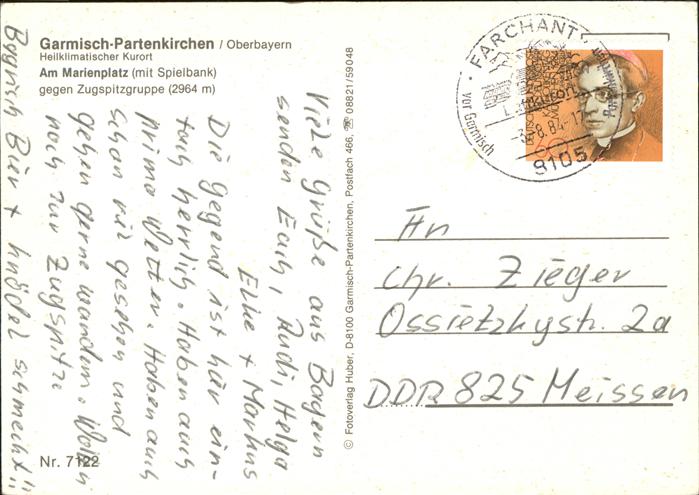 Garmisch-Partenkirchen / Oberbayern
Heilklimatischer Kurort
Am Marienplatz (mit Spielbank)
gegen Zugspitzgruppe (2964 m)
Viele Grüße aus Bayern
senden Euch, Rudi, Helga
Elke + Markus
Die Gegend ist hier ein-
fach herrlich. Haben auch
prima Wetter. Haben auch
schon viel gesehen und
gehen gerne wandern. Wollen
noch zur Zugspitze
Bayrisch Bier + Knödel schmeckt!!
Nr. 7122
© Fotoverlag Huber, D-8100 Garmisch-Partenkirchen, Postfach 466, ☏ 08821/59048
FARCHANT
vor Garmisch
8.84-17
8105
An
Chr. Zieger
Ossietzkystr. 2a
DDR 825 Meissen